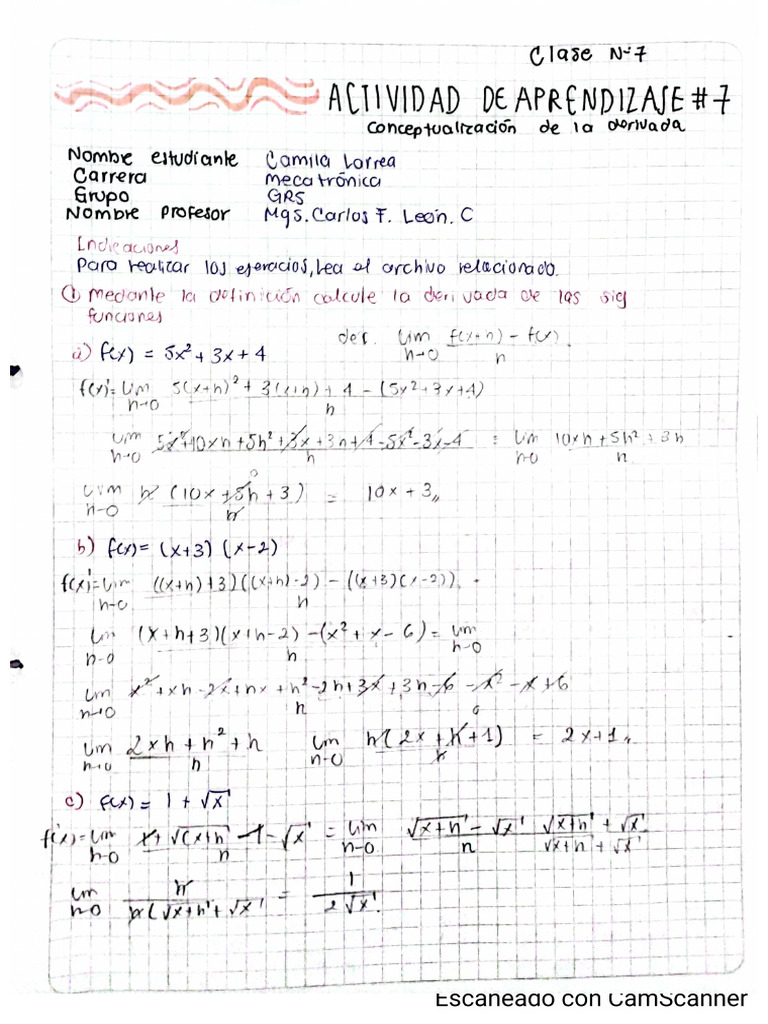 Clase N-7
ACTIVIDAD DE APRENDIZASE #7
Conceptualización de la derivada
Nombre estudiante Camila Larrea
Carrera mecatrónica
Grupo GR5
Nombre profesor Mgs. Carlos F. León. C
Indicaciones
Para realizar los ejercicios, lea el archivo relacionado.
① mediante la definición calcule la derivada de las sig
funciones
der. lim h→0 f(x+h) - f(x) / h
a) f(x) = 5x² + 3x + 4
f(x)' = lim h→0 5(x+h)² + 3(x+h) + 4 - (5x² + 3x + 4) / h
lim h→0 5x² + 10xh + 5h² + 3x + 3h + 4 - 5x² - 3x - 4 / h = lim h→0 10xh + 5h² + 3h / h
lim h→0 h (10x + 5h + 3) / h = 10x + 3
b) f(x) = (x+3) (x-2)
f(x)' = lim h→0 ((x+h)+3)((x+h)-2) - ((x+3)(x-2)) / h
lim h→0 (x+h+3)(x+h-2) - (x² + x - 6) / h = lim h→0
lim h→0 x² + xh - 2x + hx + h² - 2h + 3x + 3h - 6 - x² - x + 6 / h
lim h→0 2xh + h² + h / h lim h→0 h(2x + h + 1) / h = 2x + 1
c) f(x) = 1 + √x
f'(x) = lim h→0 1 + √(x+h) - 1 - √x / h = lim h→0 √x+h - √x / h √x+h + √x / √x+h + √x
lim h→0 h / h(√x+h + √x) = 1 / 2√x
Escaneado con CamScanner